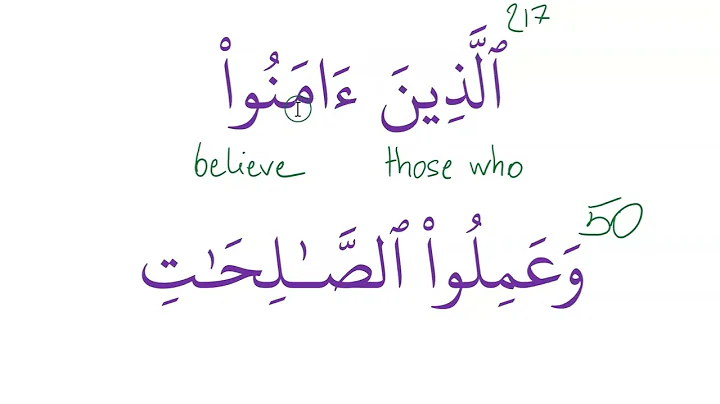 217
ٱلَّذِينَ ءَامَنُوا۟
believe those who
50
وَعَمِلُوا۟ ٱلصَّـٰلِحَـٰتِ